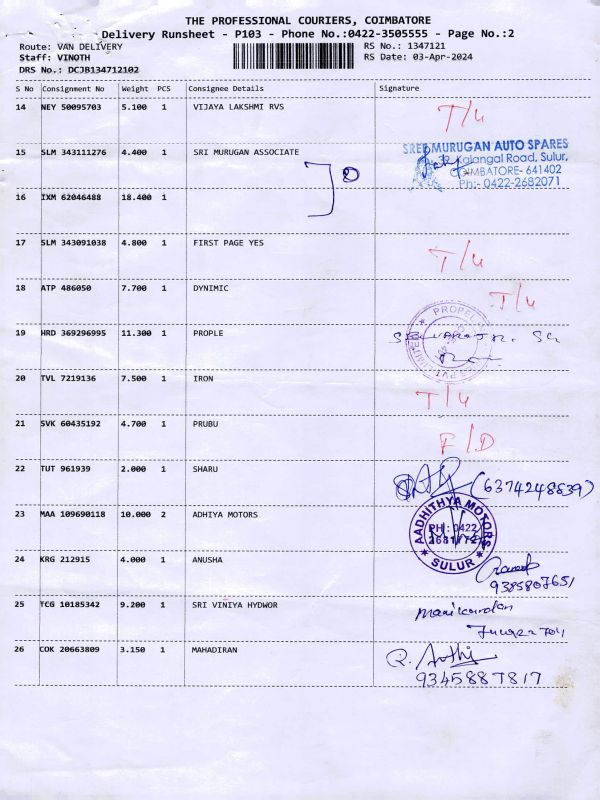 THE PROFESSIONAL COURIERS, COIMBATORE
Delivery Runsheet - P103 - Phone No.:0422-3505555 - Page No.:2
Route: VAN DELIVERY RS No.: 1347121
Staff: VINOTH RS Date: 03-Apr-2024
DRS No.: DCJB134712102
S No Consignment No Weight PCS Consignee Details Signature
14 NEY 50095703 5.100 1 VIJAYA LAKSHMI RVS T/4
15 SLM 343111276 4.400 1 SRI MURUGAN ASSOCIATE
SREE MURUGAN AUTO SPARES
Kalangal Road, Sulur,
COIMBATORE- 641402
Ph:- 0422-2682071
16 IXM 62046488 18.400 1
17 SLM 343091038 4.800 1 FIRST PAGE YES T/4
18 ATP 486050 7.700 1 DYNIMIC T/4
19 HRD 369296995 11.300 1 PROPLE
20 TVL 7219136 7.500 1 IRON T/4
21 SVK 60435192 4.700 1 PRUBU F/D
22 TUT 961939 2.000 1 SHARU (6374248839)
23 MAA 109690118 10.000 2 ADHIYA MOTORS
AADHITHYA MOTORS
PH : 0422
SULUR
24 KRG 212915 4.000 1 ANUSHA
9385807651
25 TCG 10185342 9.200 1 SRI VINIYA HYDWOR Manikandan
26 COK 20663809 3.150 1 MAHADIRAN R. Aathi
9345887817